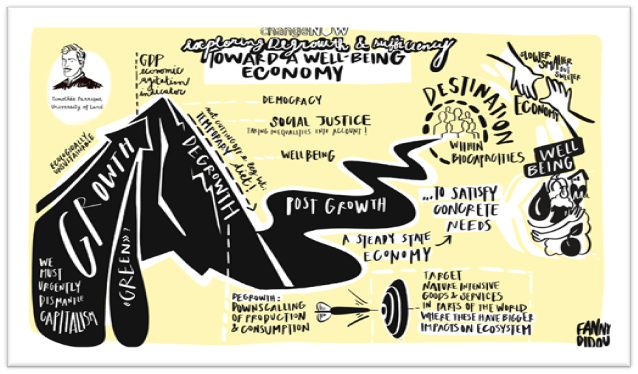 changeNOW
exploring DEgROwth & sufficiency
TOWARD A WELL-BEING
ECONOMY
GDP
economic
agitation
indicator
Timothée Parrique,
University of Lund
ECOLOGICALLY
UNSUSTAINABLE
GROWTH
"GREEN"?
WE
MUST
URGENTLY
DISMANTLE
CAPITALISM
DEGROWTH
TEMPORARY
diet,
DEMOCRACY
SOCIAL JUSTICE
TAKING INEQUALITIES INTO ACCOUNT!
WELLBEING
POST GROWTH
A STEADY STATE
ECONOMY
DESTINATION
WITHIN
BIOCAPACITIES
...TO SATISFY
CONCRETE
NEEDS
SLOWER
SMALLER
BUT
SWEETER
ECONOMY
WELL
BEING
DEGROWTH:
DOWNSCALLING
OF PRODUCTION
& CONSUMPTION
TARGET
NATURE INTENSIVE
GOODS & SERVICES
IN PARTS OF THE WORLD
WHERE THESE HAVE BIGGER
IMPACTS ON ECOSYSTEM
FANNY
DIDOU